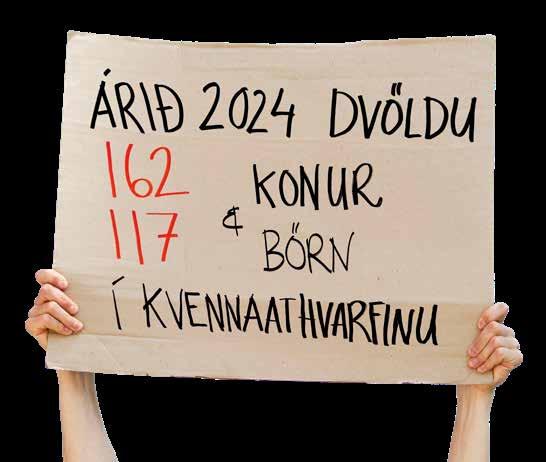 ÁRIÐ 2024 DVÖLDU
162 KONUR
117 & BÖRN
Í KVENNAATHVARFINU